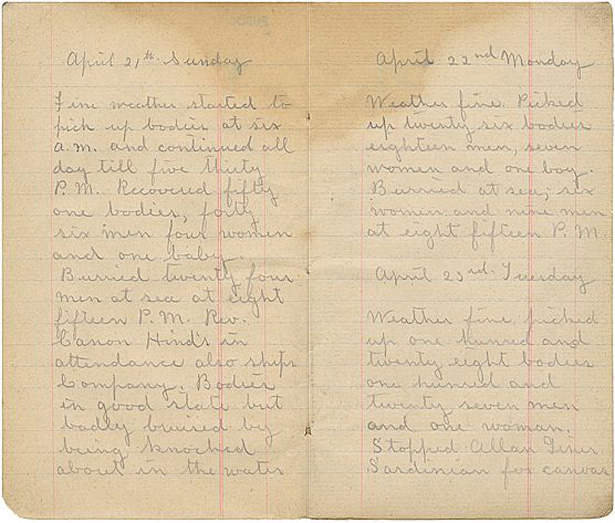 April 21st Sunday
Fine weather started to
pick up bodies at six
a.m. and continued all
day till five thirty
P.M. Recovered fifty
one bodies, forty
six men four women
and one baby.
Burried twenty four
men at sea at eight
fifteen P.M. Rev.
Canon Hinds in
attendance also ships
Company. Bodies
in good state but
badly bruised by
being knocked
about in the water
April 22nd Monday
Weather fine. Picked
up twenty six bodies
eighteen men, seven
women and one boy.
Burried at sea, six
women and nine men
at eight fifteen P.M.
April 23rd. Tuesday
Weather fine, picked
up one hunred and
twenty eight bodies
one hunred and
twenty seven men
and one woman.
Stopped Allan Liner
Sardinian for canvas